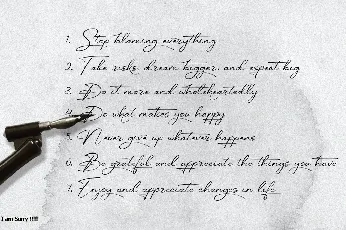 1. Stop blaming everything
2. Take risks, dream bigger, and expect big
3. Do it more and wholeheartedly
4. Do what makes you happy
5. Never give up whatever happens
6. Be grateful and appreciate the things you have
7. Enjoy and appreciate changes in life
I am Sorry !!!!